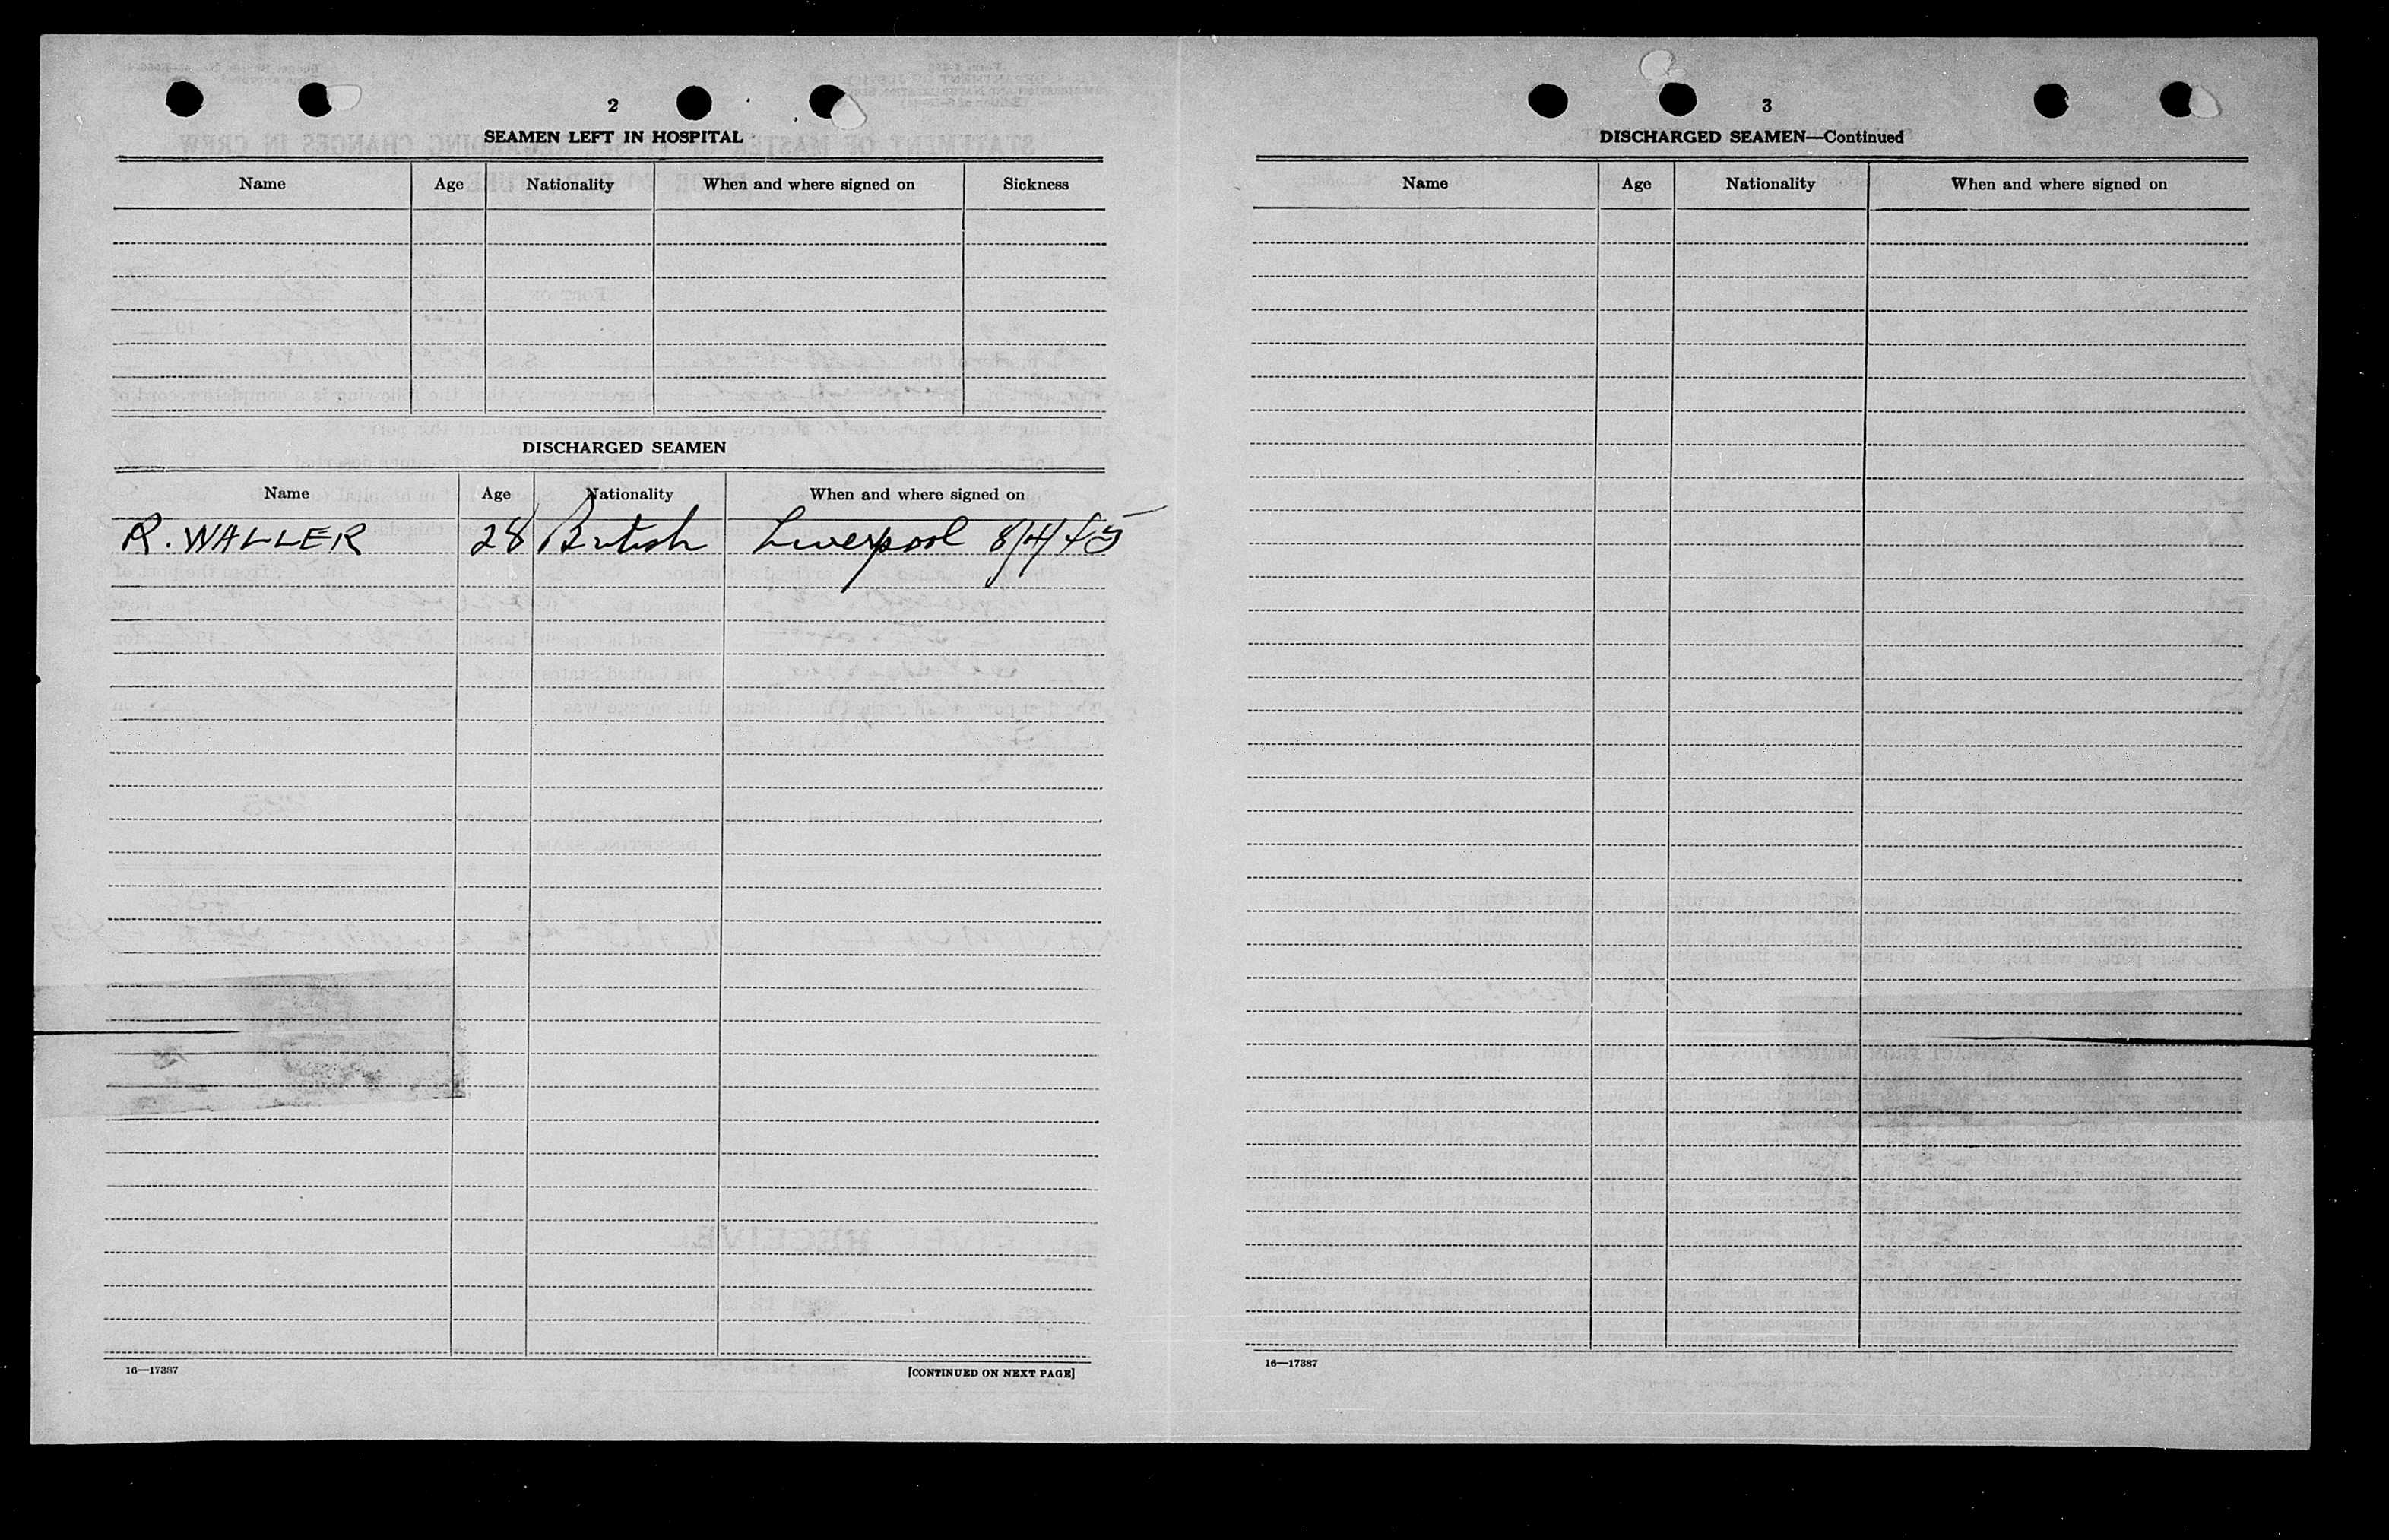 2
SEAMEN LEFT IN HOSPITAL
Name Age Nationality When and where signed on Sickness
DISCHARGED SEAMEN
Name Age Nationality When and where signed on
R. WALLER 28 British Liverpool 8/4/45
16—17387 [CONTINUED ON NEXT PAGE]
3
DISCHARGED SEAMEN—Continued
Name Age Nationality When and where signed on
16—17387